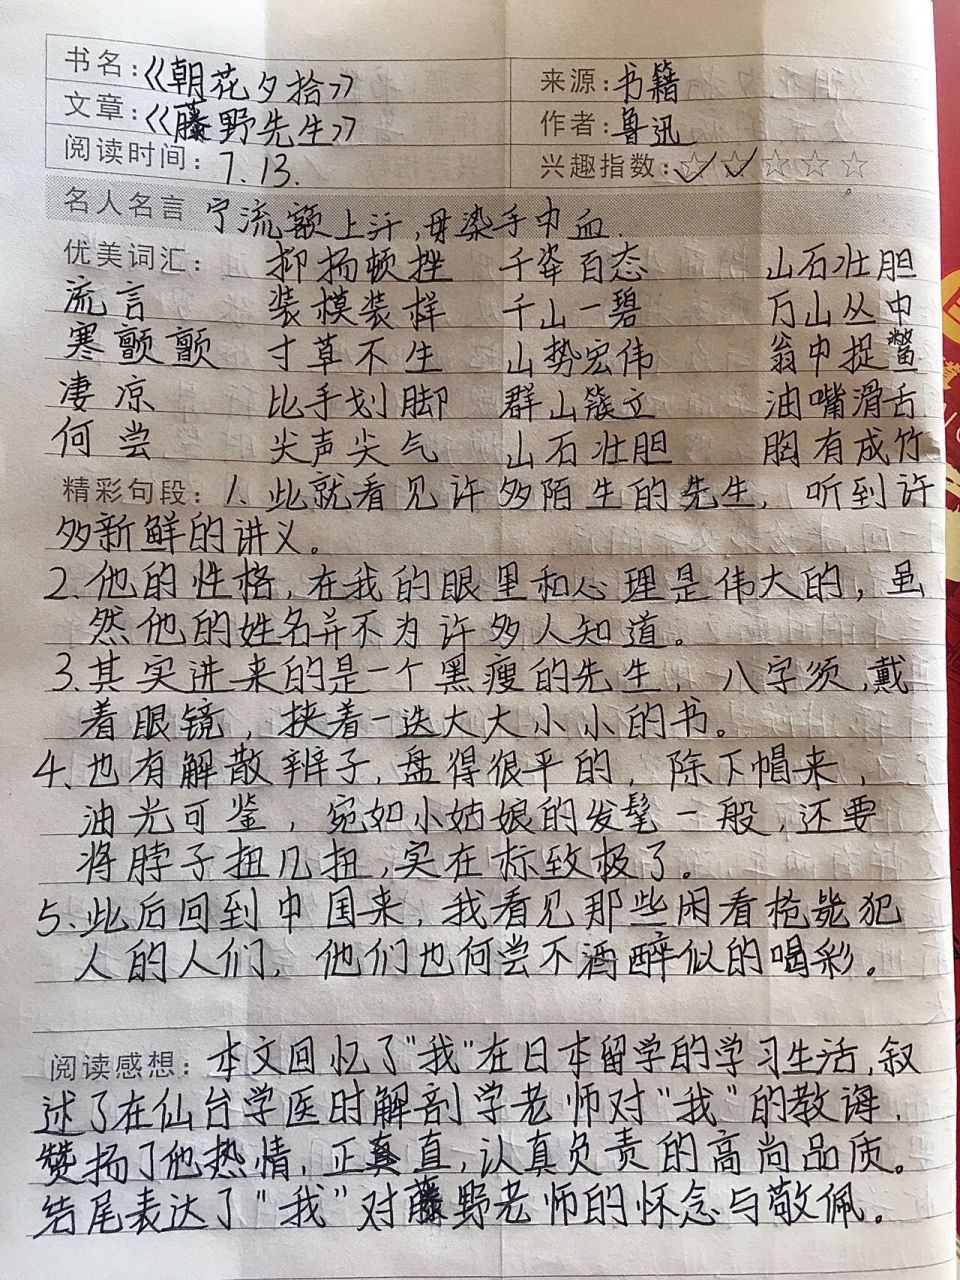 书名：《朝花夕拾》 来源：书籍
文章：《藤野先生》 作者：鲁迅
阅读时间：7.13. 兴趣指数：☆☆☆☆☆
名人名言 宁流额上汗，毋染手中血.
优美词汇： 抑扬顿挫 千姿百态 山石壮胆
流言 装模装样 千山一碧 万山丛中
寒颤颤 寸草不生 山势宏伟 翁中捉鳖
凄凉 比手划脚 群山簇立 油嘴滑舌
何尝 尖声尖气 山石壮胆 胸有成竹
精彩句段：1. 此就看见许多陌生的先生，听到许
多新鲜的讲义。
2. 他的性格，在我的眼里和心理是伟大的，虽
然他的姓名并不为许多人知道。
3. 其实进来的是一个黑瘦的先生，八字须，戴
着眼镜，挟着一迭大大小小的书。
4. 也有解散辫子，盘得很平的，除下帽来，
油光可鉴，宛如小姑娘的发髦一般，还要
将脖子扭几扭，实在标致极了。
5. 此后回到中国来，我看见那些闲看枪毙犯
人的人们，他们也何尝不酒醉似的喝彩。
阅读感想：本文回忆了"我"在日本留学的学习生活，叙
述了在仙台学医时解剖学老师对"我"的教诲，
赞扬了他热情，正真直，认真负责的高尚品质。
结尾表达了"我"对藤野老师的怀念与敬佩。